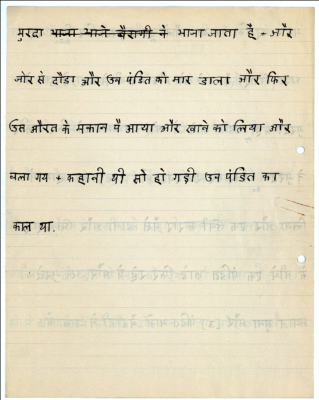 मुरदा खाना खाने बैरागी ने खाना जाता है - और
जोर से दौडा और उन पंडित को मार डाला और फिर
उस औरत के मकान मै आया और खाने को लिया और
चला गय + कहानी थी सो हो गई उन पंडित का
काल था.